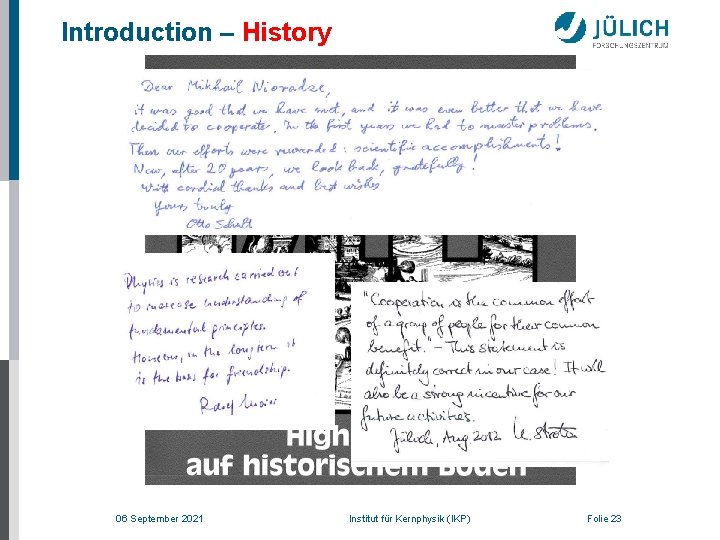 Introduction – History
JÜLICH
FORSCHUNGSZENTRUM
Dear Mikhail Nioradze,
it was good that we have met, and it was even better that we have
decided to cooperate. In the first years we had to master problems.
Then our efforts were rewarded: scientific accomplishments!
Now, after 20 years, we look back, gratefully!
With cordial thanks and best wishes
Yours truly
Otto Schult
Physics is research carried out
to increase understanding of
fundamental principles.
However, in the long term it
is the basis for friendship.
Rudolf Maier
"Cooperation is the common effort
of a group of people for their common
benefit." – This statement is
definitely correct in our case! It will
also be a strong incentive for our
future activities.
Jülich, Aug 2012
High
auf historischem Boden
06 September 2021
Institut für Kernphysik (IKP)
Folie 23